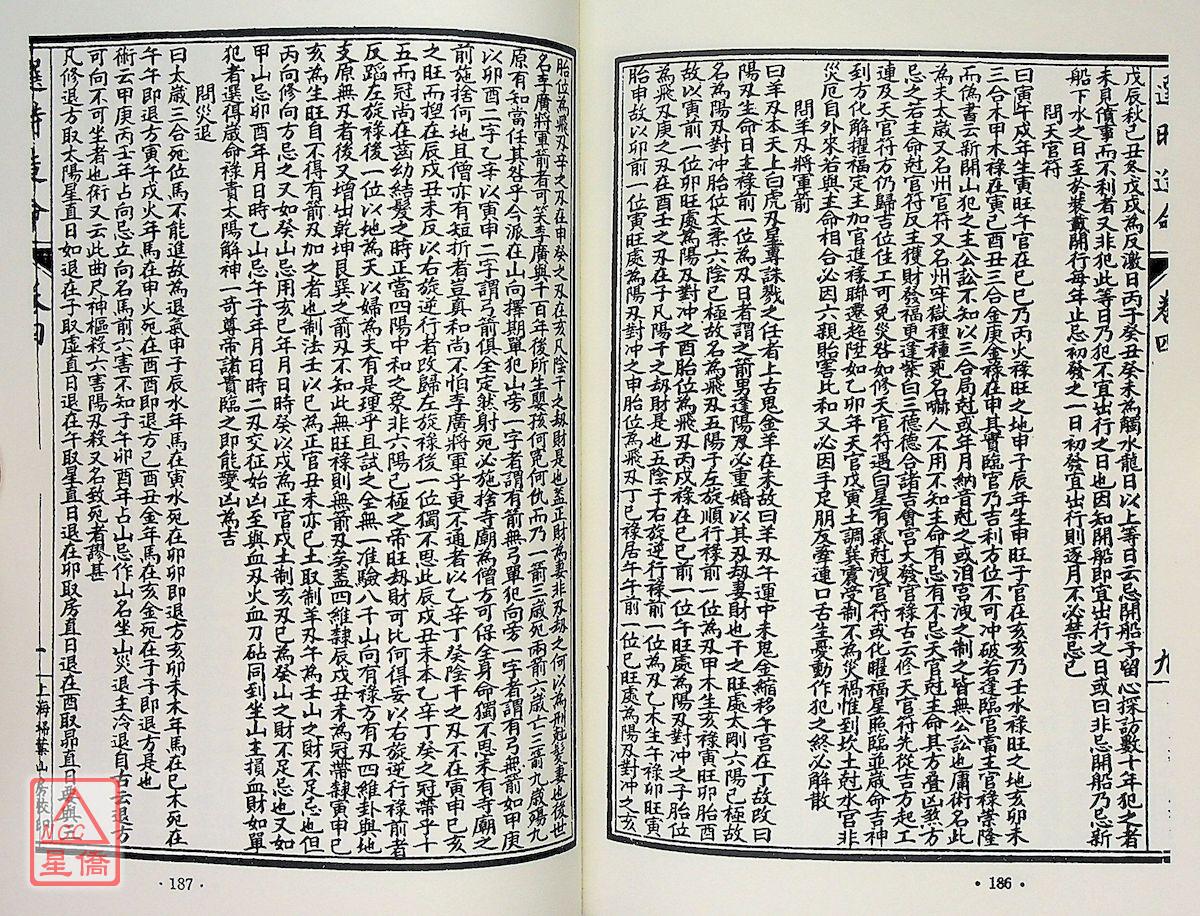 選時造命
卷四
九
戊辰秋己丑冬戊戌為反激日丙子癸丑癸未為觸水龍日以上等日云忌開船予留心探訪數十年犯之者
未見僨事而不利者又非犯此等日乃犯不宜出行之日也因知開船即宜出行之日或曰非忌開船乃忌新
船下水之日至於裝載開行每年止忌初發之一日初發宜出行則逐月不必禁忌已
問天官符
曰寅午戌年生寅旺午官在巳巳乃丙火祿旺之地申子辰年生申旺子官在亥亥乃壬水祿旺之地亥卯未
三合木甲木祿在寅巳酉丑三合金庚金祿在申其實臨官乃吉利方位不可冲破若逢臨官富主官祿崇隆
而偽書云新開山犯之主公訟不知以三合局尅或年月納音尅之或洎宮洩之制之皆無公訟也庸術名此
為夫太歲又名州官符又名州牢獄種種更名嚇人不用不知主命有忌有不忌天官尅主命其方疊凶煞方
忌之若主命尅官符反主獲財發福更逢紫白三德德合諸吉會宮大發官祿古云修天官符先從吉方起工
連及天官符方仍歸吉位住工可免災咎如修天官符遇白星有氣尅洩官符或化曜福星照臨並歲命吉神
到方化解擢福定主加官進祿聯遷超陞如乙卯年天官戊寅土調巽震受制不為災禍惟到坎土尅水官非
災厄自外來若與主命相合必因六親貽害比和又必因手足朋友牽連口舌生憂動作犯之終必解散
問羊刄將軍箭
曰羊刄本天上白虎刄星專誅戮之任者上古鬼金羊在未故曰羊刄午運中未鬼金縮移午宮在丁故改曰
陽刄生命日主祿前一位為刄日者謂之箭男逢陽刄必重婚以其刄刼妻財也干之旺處太剛六陽已極故
名為陽刄對冲胎位太柔六陰已極故名為飛刄五陽干左旋順行祿前一位為刄甲木生亥祿寅旺卯胎酉
故以寅前一位卯旺處為陽刄對冲之酉胎位為飛刄丙戊祿在巳巳前一位午旺處為陽刄對冲之子胎位
為飛刄庚之刄在酉壬之刄在子凡陽干之刼財是也五陰干右旋逆行祿前一位為刄乙木生午祿卯旺寅
胎申故以卯前一位寅旺處為陽刄對冲之申胎位為飛刄丁己祿居午午前一位巳旺處為陽刄對冲之亥
• 186 •
胎位為飛刄辛之刄在申癸之刄在亥凡陰干之刼財是也蓋正財為妻非刄刼之何以為刑尅髮妻也後世
名李廣將軍箭者可笑李廣與千百年後所生嬰孩何冤何仇而乃一箭三歲死兩箭六歲亡三箭九歲殤九
原有知當任其咎乎今派在山向擇期單犯山旁一字者謂有箭無弓單犯向旁一字者謂有弓無箭如甲庚
以卯酉二字乙辛以寅申二字謂弓箭俱全定然射死必施捨寺廟為僧方可保全身命獨不思未有寺廟之
前施捨何地且僧亦有短折者豈真和尚不怕李廣將軍乎更不通者以乙辛丁癸陰干之刄不在寅申巳亥
之旺而揑在辰戌丑未反以右旋逆行者改歸左旋祿後一位獨不思此辰戌丑未本乙辛丁癸之冠帶乎十
五而冠尚在齒幼結髮之時正當四陽中和之象非六陽已極之帝旺刼財可比何得妄以右旋逆行祿前者
反蹈左旋祿後一位以地為天以婦為夫有是理乎且試之全無一准驗八千山向有祿方有刄四維卦與地
支原無刄者後又增出乾坤艮巽之箭刄不知此無旺祿則無箭刄矣蓋四維隸辰戌丑未為冠帶隸寅申巳
亥為生旺自不得有箭刄加之者也制法壬以己為正官丑未亦己土取制羊刄午為壬山之財不足忌也但
丙向修向方忌之又如癸山忌用亥巳年月日時癸以戌為正官戌土制亥刄巳為癸山之財不足忌也又如
甲山忌卯酉年月日時乙山忌午子年月日時二刄交征始凶至與血刄火血刀砧同到坐山主損血財如單
犯者選得歲命祿貴太陽解神一奇尊帝諸貴臨之即能變凶為吉
問災退
曰太歲三合死位馬不能進故為退氣申子辰水年馬在寅水死在卯卯即退方亥卯未木年馬在巳木死在
午午即退方寅午戌火年馬在申火死在酉酉即退方巳酉丑金年馬在亥金死在子子即退方是也
術云甲庚丙壬年占向忌立向名馬前六害不知子午卯酉年占山忌作山名坐山災退主冷退自古云退方
可向不可坐者也術又云此曲尺神樞殺六害陽刄殺又名致死者謬甚
凡修退方取太陽星直日如退在子取虛直日退在午取星直日退在卯取房直日退在酉取昴直日要與三
選時造命
卷四
一
上海掃葉山房校印
• 187 •
NCC
星僑